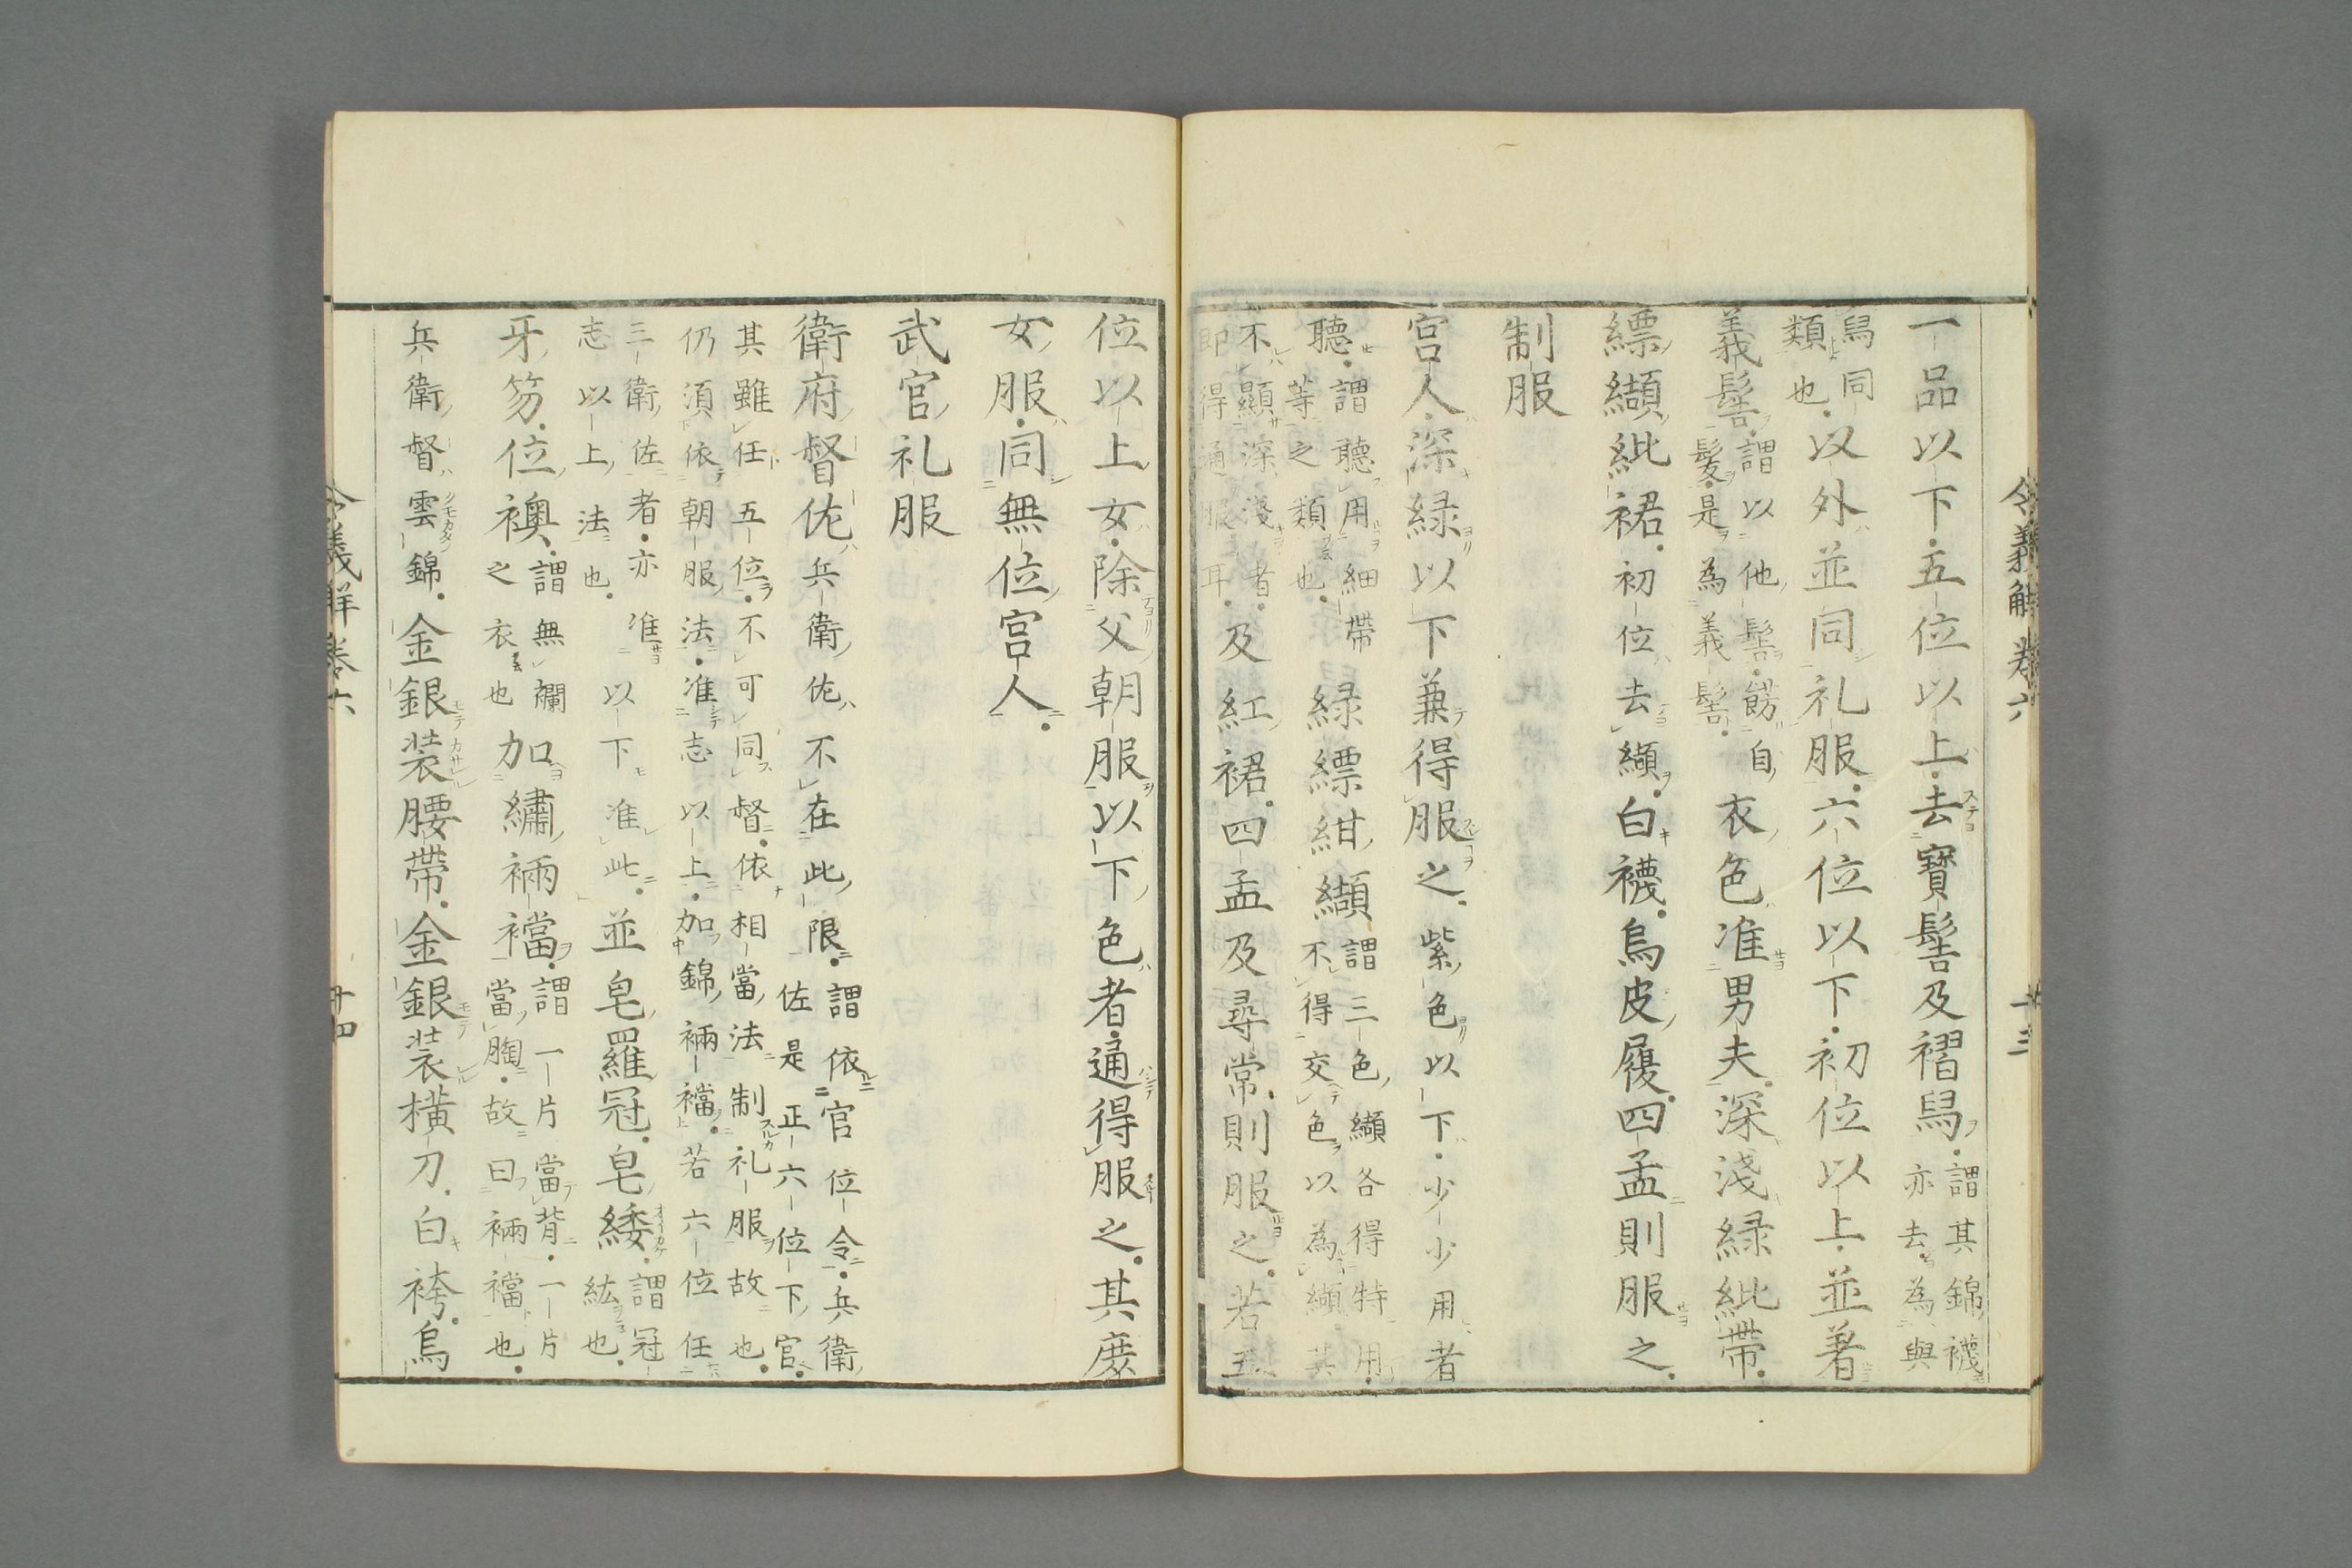 令義解卷六 廿三
一品以下五位以上去寶髻及褶舄謂其錦襪亦去為與
舄同類也以外並同礼服六位以下初位以上並著
義髻謂以他髻餝自髮是為義髻衣色准男夫深淺緑紕帶
縹纈紕裙初位去纈白襪烏皮履四孟則服之
制服
宮人深緑以下兼得服之紫色以下少少用者
聽謂聽用細帶等之類也緑縹紺纈謂三色纈各得特用不得交色以為纈其
不顯深淺者即得通服耳及紅裙四孟及尋常則服之若五
位以上女除父朝服以下色者通得服之其庶
女服同無位宮人
武官礼服
衛府督佐兵衛佐不在此限謂依官位令兵衛佐是正六位下官
其雖任五位不可同督依相當法制礼服故也
仍須依朝服法准志以上加錦裲襠若六位任
三衛佐者亦准志以上法也以下准此並皂羅冠皂緌謂冠紘也
牙笏位襖謂無襴之衣也加繡裲襠謂一片當背一片當胸故曰裲襠也
兵衛督雲錦金銀装腰帶金銀装横刀白袴烏
令義解卷六 廿四